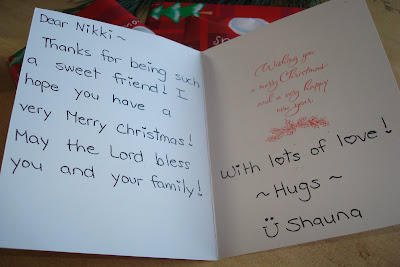 Dear Nikki ~
Thanks for being such
a sweet friend! I
hope you have a
very Merry Christmas!
May the Lord bless
you and your family!
Wishing you
a merry Christmas
and a very happy
new year
With lots of love!
~ Hugs ~
Shauna